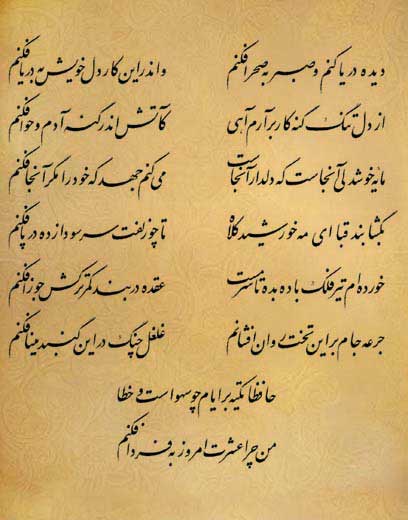 دیده دریا کنم و صبر به صحرا فکنم واندرین کار دل خویش به دریا فکنم
از دل تنگ گنه کار برآرم آهی کآتش اندر گنه آدم و حوا فکنم
مایه خوشدلی آنجاست که دلدار آنجاست می کنم جهد که خود را مگر آنجا فکنم
بگشا بند قبا ای مه خورشید کلاه تا چو زلفت سر سودا زده در پا فکنم
خورده ام تیر فلک باده بده تا سرمست عقده در بند کمر ترکش جوزا فکنم
جرعه جام بر این تخت روان افشانم غلغل چنگ در این گنبد مینا فکنم
حافظا تکیه بر ایام چو سهو است و خطا
من چرا عشرت امروز به فردا فکنم